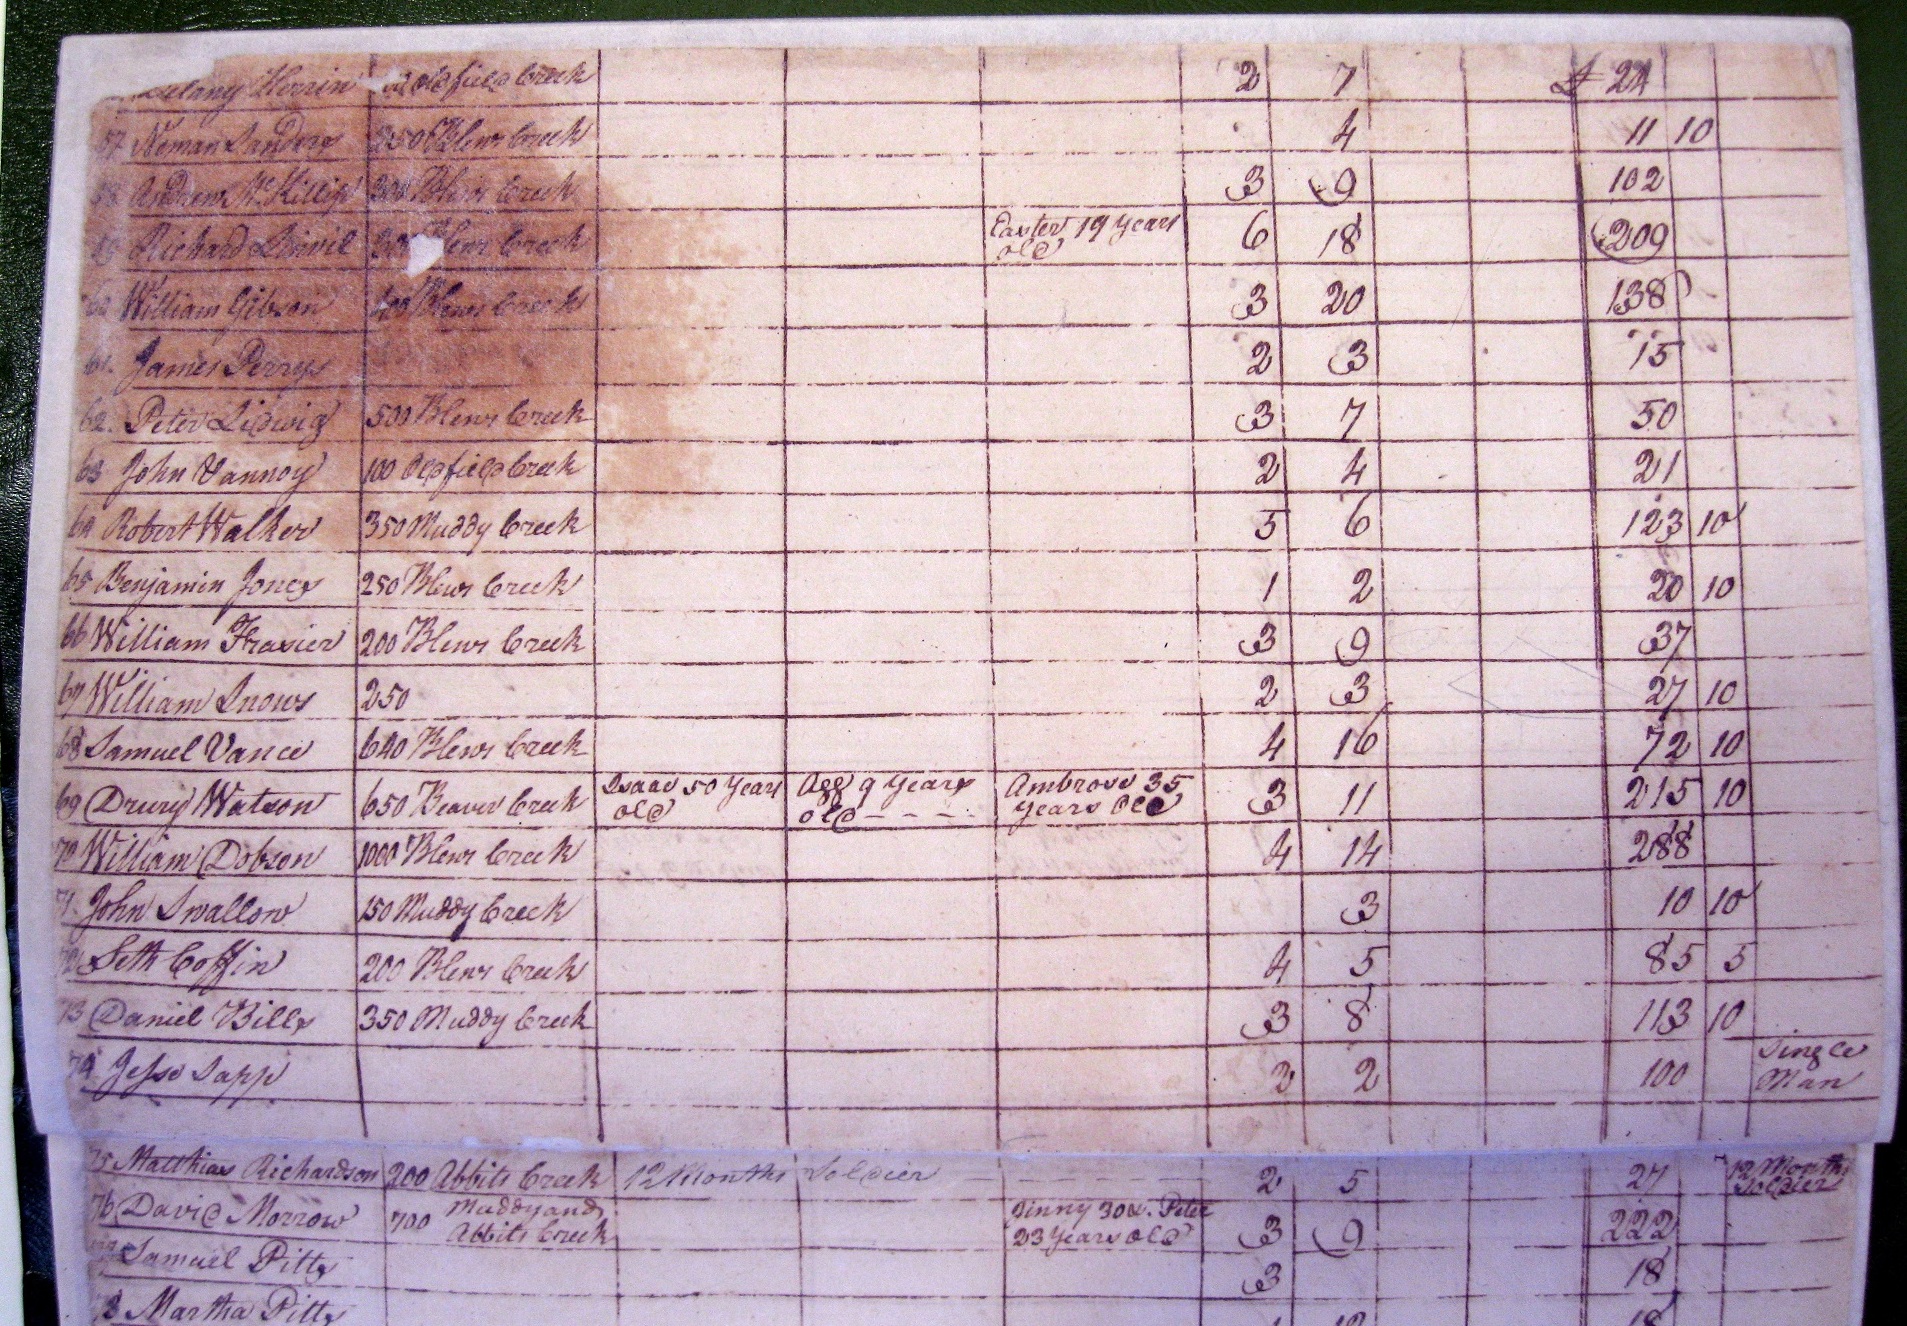 Herrin Oldfield Creek 2 7 £ 24
57 Neman Sanders 250 Blews Creek 4 11 10
58 Andrew McKillip 300 Blews Creek 3 9 102
Richard Blews Creek Easter 19 years old 6 18 209
60 William Gibson 400 Blews Creek 3 20 138
61. James Perry 2 3 15
62. Peter Lidwig 500 Blews Creek 3 7 50
63 John Vannoy 100 Oldfield Creek 2 4 21
64 Robert Walker 350 Muddy Creek 5 6 123 10
65 Benjamin Jones 250 Blews Creek 1 2 20 10
66 William Frasier 200 Blews Creek 3 9 37
67 William Snows 250 2 3 27 10
68 Samuel Vance 640 Blews Creek 4 16 72 10
69 Drury Watson 650 Beaver Creek Isaac 50 years old Agg 9 years old - - - - Ambrose 35 years old 3 11 215 10
70 William Dobson 1000 Blews Creek 4 14 288
71. John Swallow 150 Muddy Creek 3 10 10
72 Seth Coffin 200 Blews Creek 4 5 85 5
73 Daniel Bills 350 Muddy Creek 3 8 113 10
74 Jesse Sapp 2 2 100 Single Man
75 Matthias Richardson 200 Abbits Creek 12 Months Soldier 2 5 27 12 Months Soldier
76 David Morrow 700 Muddy and Abbits Creek Jinny 30 &. Peter 23 years old 3 9 222
Samuel Pitts 3 18
78 Martha Pitts 18